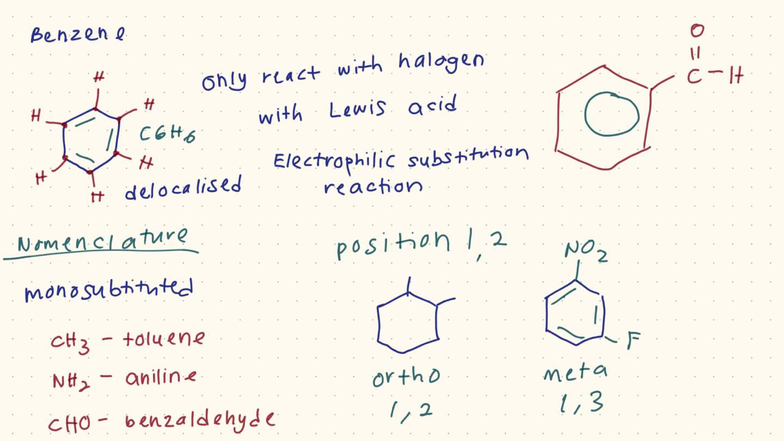 Benzene
H
H
H
H
H
H
C6H6
delocalised
only react with halogen
with Lewis acid
Electrophilic substitution
reaction
O
C-H
Nomenclature
monosubtituted
CH3 - toluene
NH2 - aniline
CHO - benzaldehyde
position 1,2
ortho
1,2
NO2
F
meta
1,3